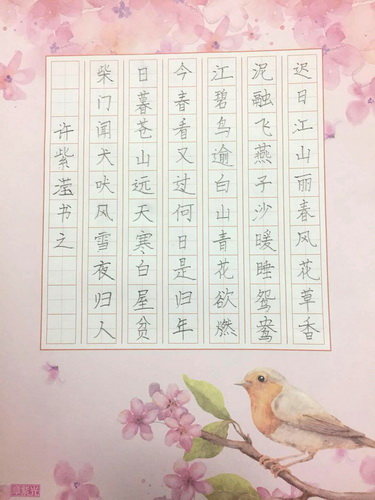 迟日江山丽春风花草香
泥融飞燕子沙暖睡鸳鸯
江碧鸟逾白山青花欲燃
今春看又过何日是归年
日暮苍山远天寒白屋贫
柴门闻犬吠风雪夜归人
许紫滢书之